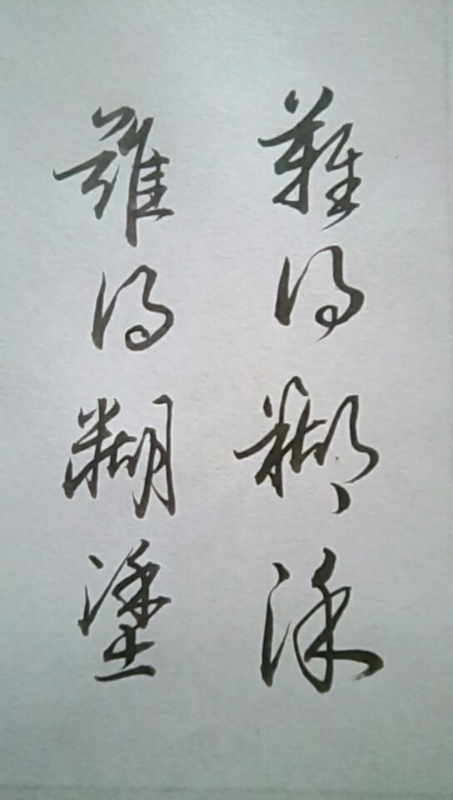 難得糊涂
難得糊塗